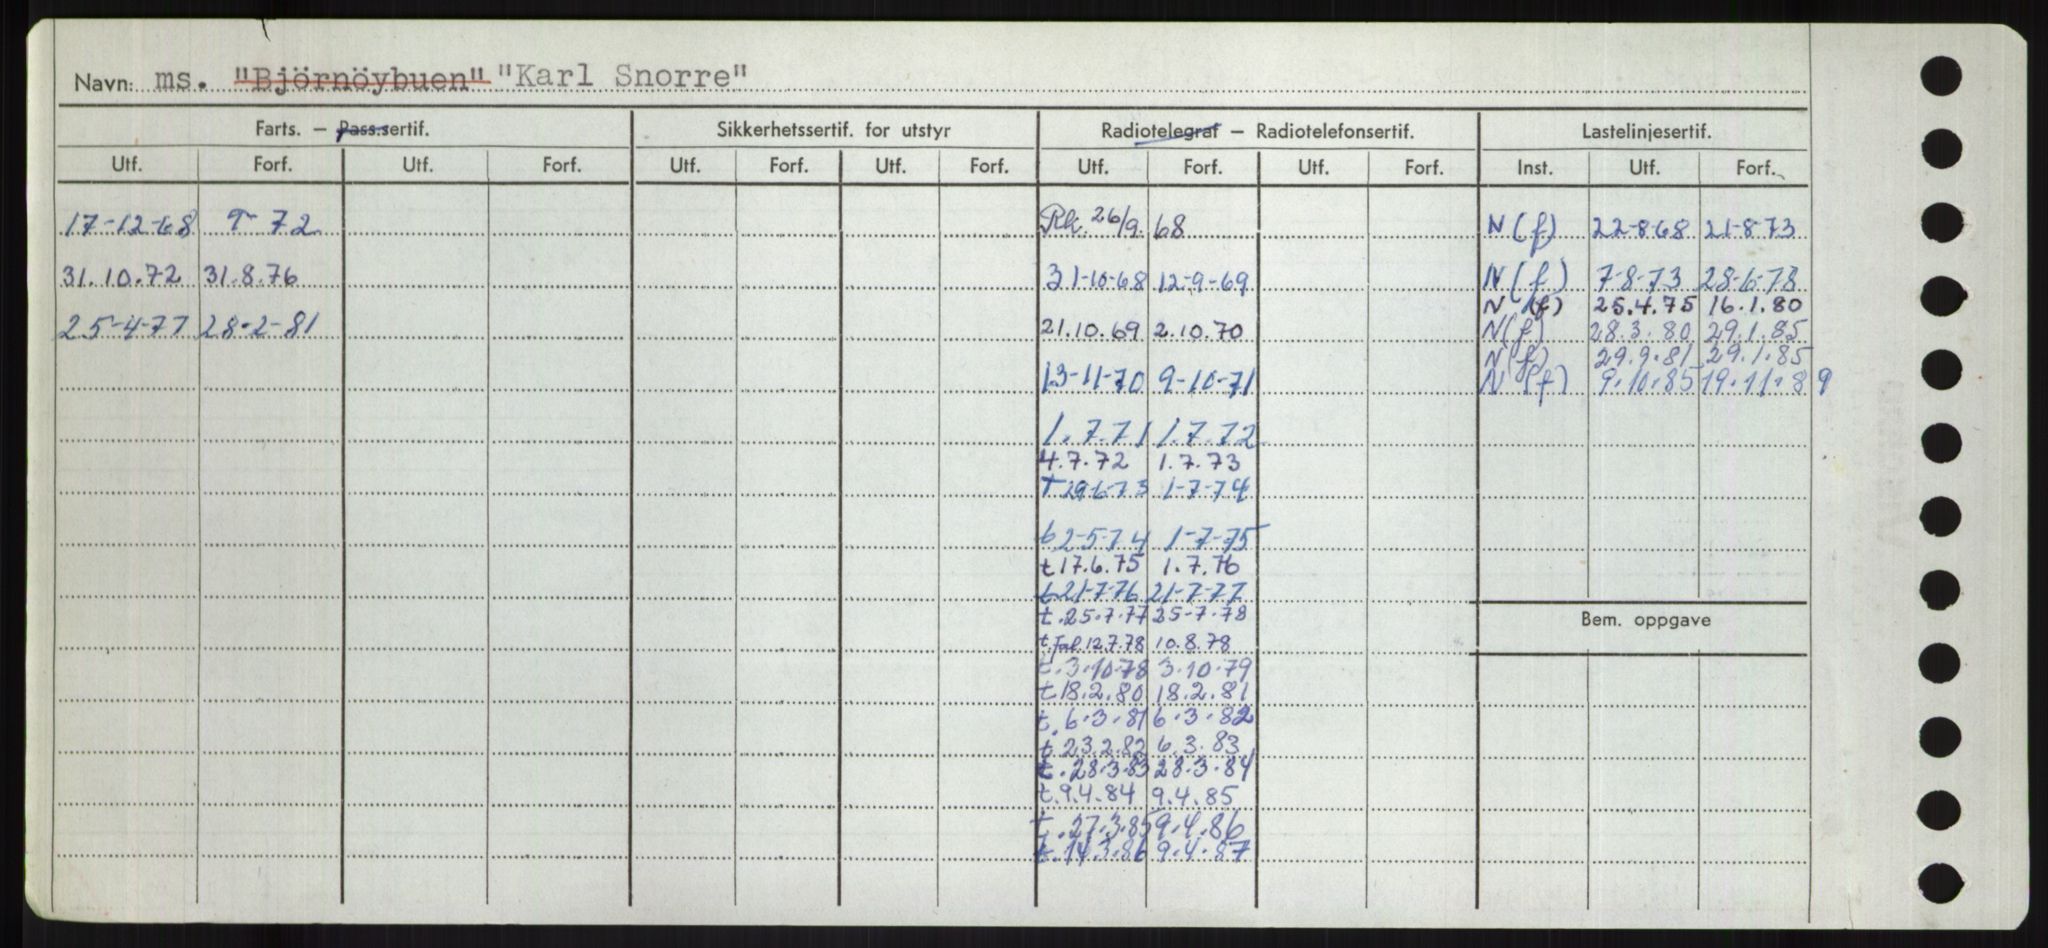 Navn: ms. "Björnöybuen" "Karl Snorre"
Farts. – Pass.sertif. Sikkerhetssertif. for utstyr Radiotelegraf – Radiotelefonsertif. Lastelinjesertif.
Utf. Forf. Utf. Forf. Utf. Forf. Utf. Forf. Utf. Forf. Utf. Forf. Inst. Utf. Forf.
17-12-68 72 26/9. 68 N(f) 22-8-68 21-8-73
31.10.72 31.8.76 31-10-68 12-9-69 N(f) 7-8-73 28-6-78
N (f) 25.4.75 16.1.80
25-4-77 28-2-81 21.10.69 2.10.70 N(f) 28.3.80 29.1.85
N(f) 29.9.81 29.1.85
13-11-70 9-10-71 N(f) 9.10.85 19.11.89
1.7.71 1.7.72
4.7.72 1.7.73
T 29-6-73 1-7-74
t 2-5-74 1-7-75
t 17.6.75 1.7.76
t 21-7-76 21-7-77
t.25.7.77 25-7.78
t. 12.7.78 10.8.78
t.3.10.78 3.10.79
t.18.2.80 18.2.81
t.6.3.81 6.3.82
t.23.2.82 6.3.83
t.28.3.83 28.3.84
t.9.4.84 9.4.85
t.27.3.85 9.4.86
t.14.3.86 9.4.87
Bem. oppgave